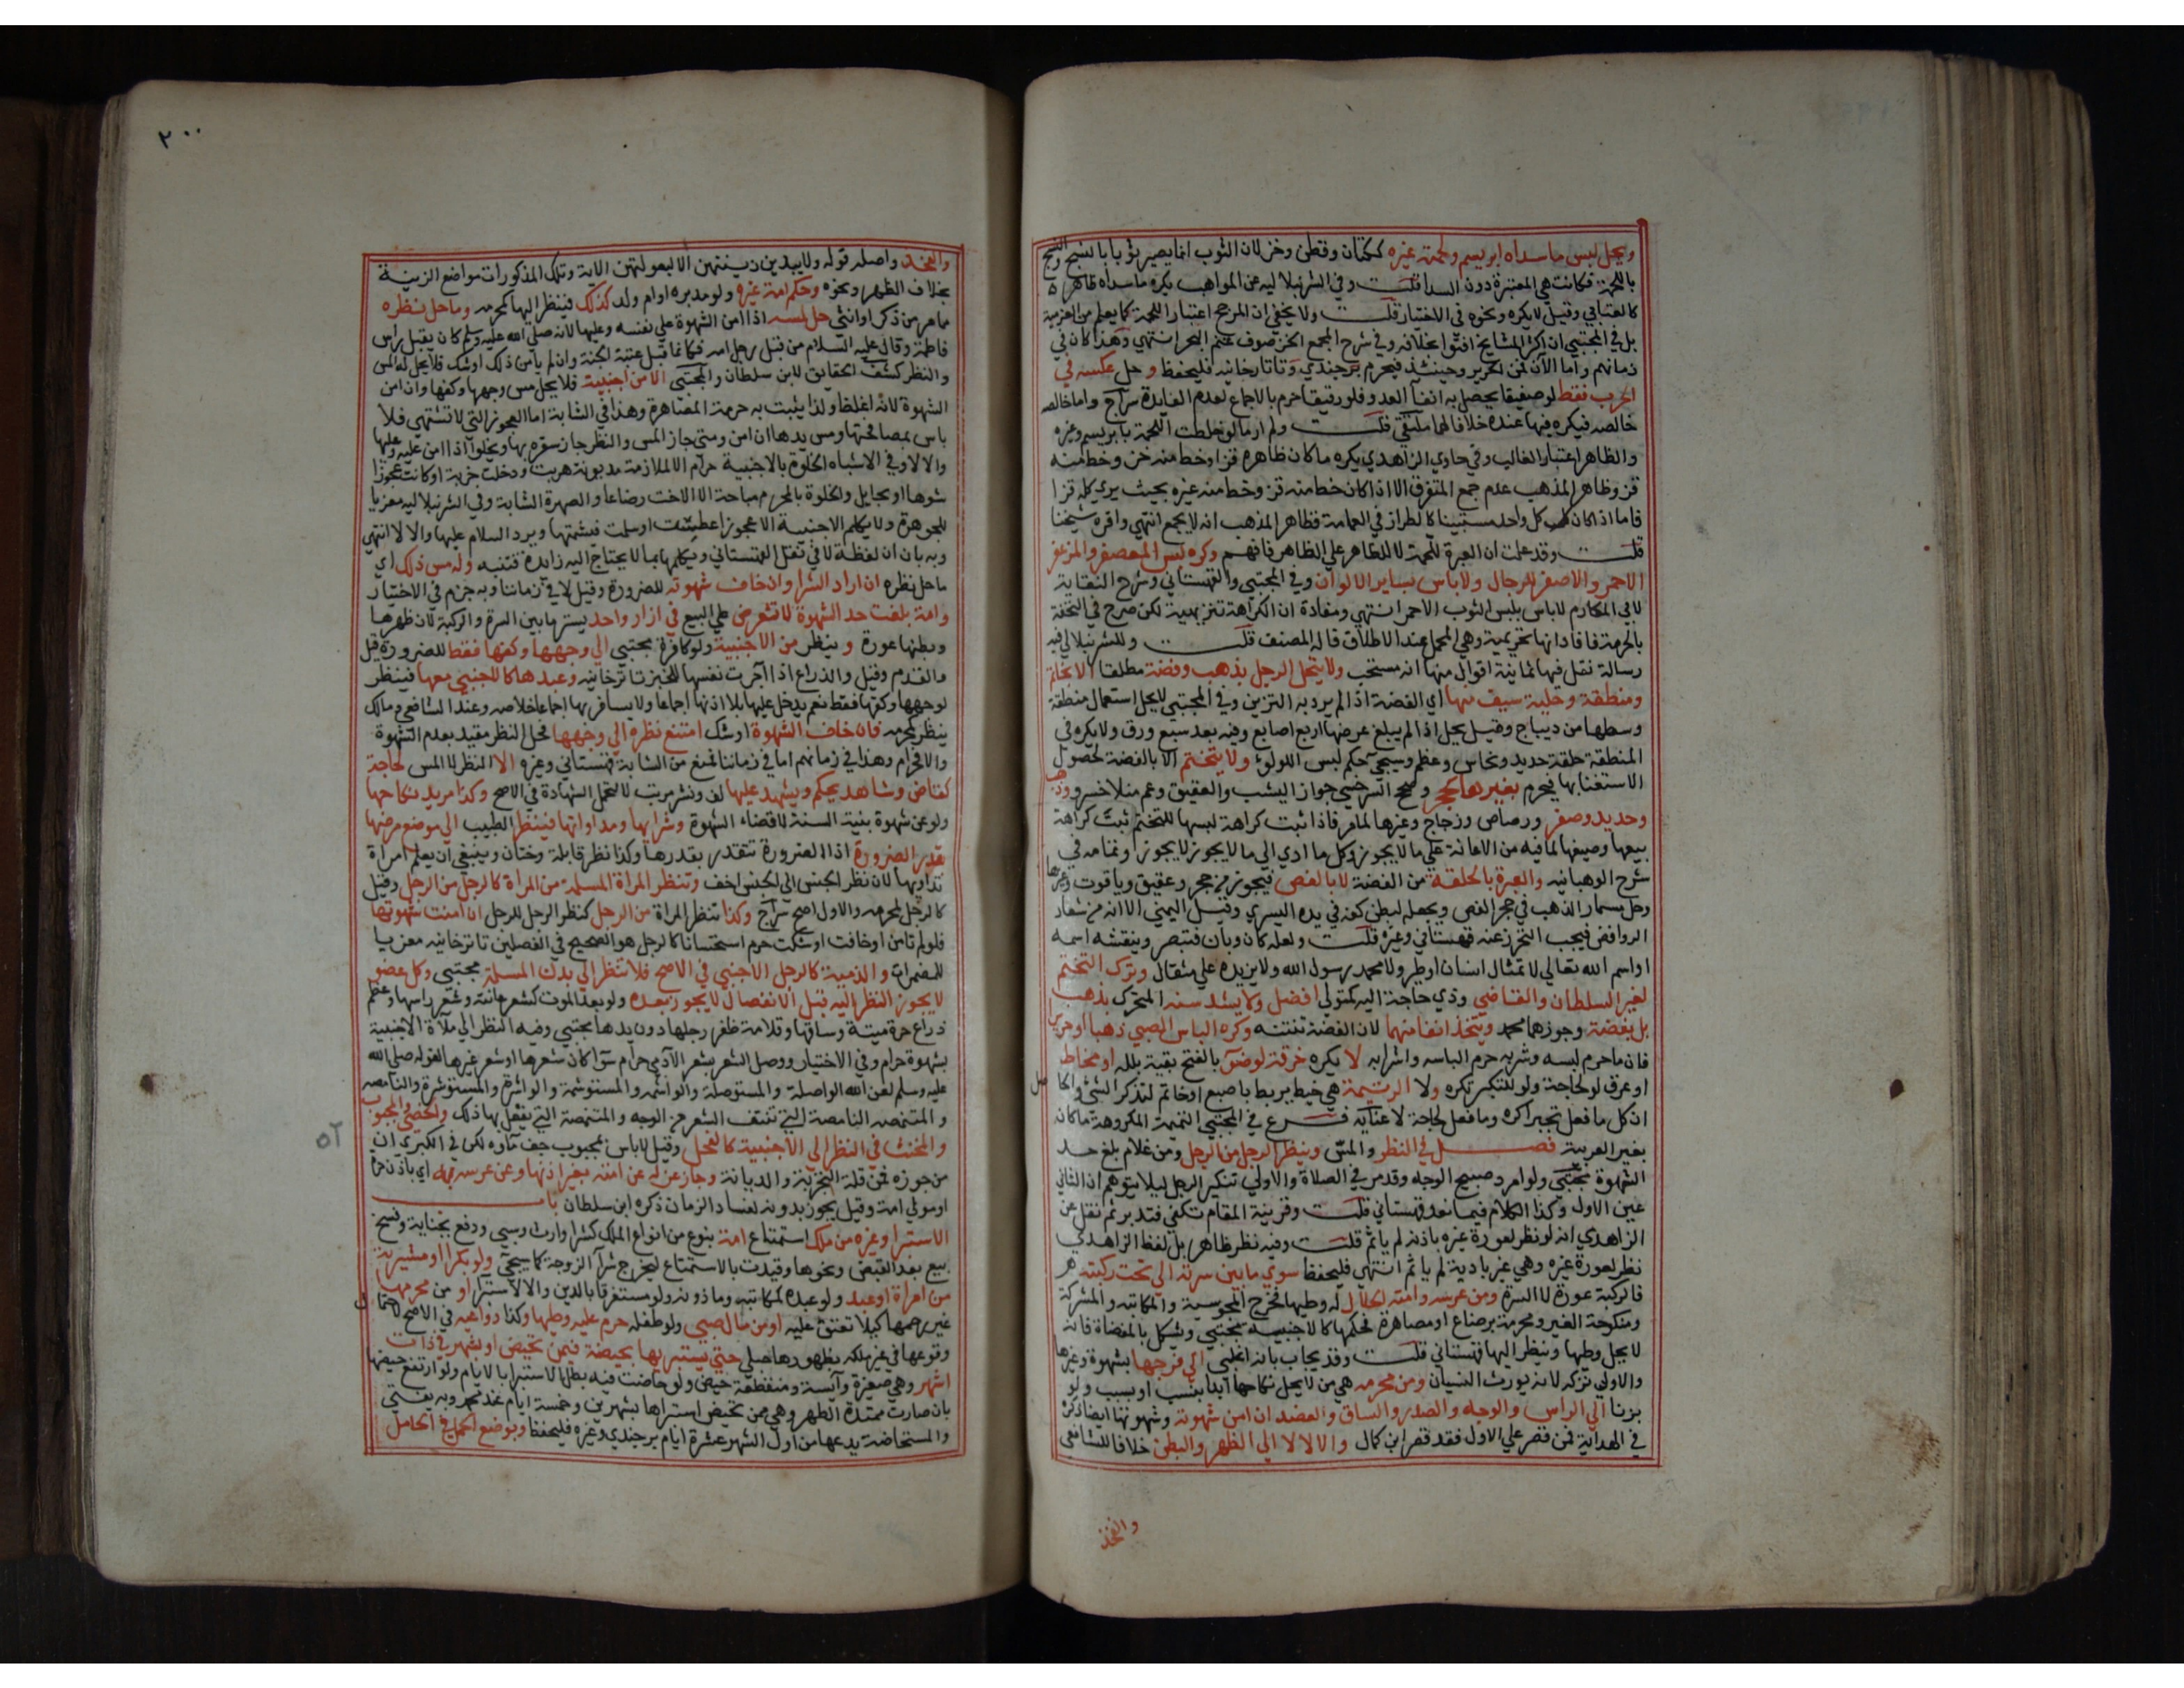 ويحل لبس ما سداه ابريسم ولحمته غيره ككتان وقطن وخز لان الثوب انما يصير ثوبا بالنسج والنسج
باللحمة فكانت هي المعتبرة دون السدا قلت وفي الشرنبلاليه عن المواهب يكره ما سداه ظاهر
كالعتابي وقيل لا يكره ونحوه في الاختيار قلت ولا يخفي ان المرجح اعتبار اللحمة كما يعلم من العزمية
بل في المجتبي ان اكثر المشايخ افتوا بخلافه وفي شرح المجمع الخز صوف غنم البحر انتهي وهذا كان في
زمانهم واما الآن فمن الحرير وحينئذ فيحرم برجندي وتاتارخانيه فليحفظ وحل عكسه في
الحرب فقط لو صفيقا يحصل به اتقآ العدو فلو رقيقا حرم بالاجماع لعدم الفايدة سراج واما خالصه
خالصه فيكره فيها عنده خلافا لهما ملتقي قلت ولم ار ما لو خلطت اللحمة بابريسم وغيره
والظاهر اعتبار الغالب وفي حاوي الزاهدي يكره ما كان ظاهره قز او خط منه خز وخط منه
قز وظاهر المذهب عدم جمع المتفرق الا اذا كان خط منه قز وخط منه غيره بحيث يري كله قزا
فاما اذا كان كل واحد مستبينا كالطراز في العمامة فظاهر المذهب انه لا يجمع انتهي واقره شيخنا
قلت وقد علمت ان العبرة للحمة لا للظاهر علي الظاهر فافهم وكره لبس المعصفر والمزعفر
الاحمر والاصفر للرجال ولا باس بساير الالوان وفي المجتبي والقهستاني وشرح النقاية
لابي المكارم لا باس بلبس الثوب الاحمر انتهي ومفاده ان الكراهة تنزيهية لكن صرح في التحفة
بالحرمة فافاد انها تحريمية وهي المحمل عند الاطلاق قاله المصنف قلت وللشرنبلالي فيه
رسالة نقل فيها ثمانية اقوال منها انه مستحب ولا يتحلي الرجل بذهب وفضة مطلقا الا بخاتم
ومنطقة وحلية سيف منها اي الفضة اذا لم يرد به التزين وفي المجتبي لا يحل استعمال منطقة
وسطها من ديباج وقيل يحل اذا لم يبلغ عرضها اربع اصابع وفيه بعد سبع ورق ولا يكره في
المنطقة حلقة حديد ونحاس وعظم وسيجئ حكم لبس اللولوء ولا يتختم الا بالفضة لحصول
الاستغنا بها فيحرم بغيرها كحجر وصحح السرخسي جواز اليشب والعقيق وعم منلا خسرو وذهب
وحديد وصفر ورصاص وزجاج وغيرها لما مر فاذا ثبت كراهة لبسها للتختم ثبت كراهة
بيعها وصيغها لما فيه من الاعانة علي ما لا يجوز وكل ما ادي الي ما لا يجوز لا يجوز وتمامه في
شرح الوهبانيه والعبرة بالحلقة من الفضة لا بالفص فيجوز من حجر وعقيق وياقوت وغيرها
وحل مسمار الذهب في حجر الفص ويجعله لبطن كفه في يده اليسري وقيل اليمني الا انه من شعار
الروافض فيجب التحرز عنه قهستاني وغيره قلت ولعله كان وبان فتبصر وينقشه اسمه
او اسم الله تعالي لا تمثال انسان او طير ولا محمد رسول الله ولا يزيده علي مثقال وترك التختم
لغير السلطان والقاضي وذي حاجة اليه كمتولي افضل ولا يشد سنه المتحرك بذهب
بل بفضة وجوزهما محمد ويتخذ انفا منهما لان الفضة تنتنه وكره الباس الصبي ذهبا او حرير
فان ما حرم لبسه وشربه حرم الباسه واشرابه لا يكره خرقة لوضؤ بالفتح بقية بلله او مخاط
او عرق لو لحاجة ولو للتكبر تكره ولا الرتيمة هي خيط يربط باصبع او خاتم لتذكر الشئ والحاصل
ان كل ما فعل تجبرا كره وما فعل لحاجة لا عنايه فرع في المجتبي التميمة المكروهة ما كان
بغير العربية فصل في النظر والمس وينظر الرجل من الرجل ومن غلام بلغ حد
الشهوة مجتبي ولو امرد صبيح الوجه وقد مر في الصلاة والاولي تنكير الرجل ليلا يتوهم ان الثاني
عين الاول وكذا الكلام فيما بعد قهستاني قلت وقرينة المقام تكفي فتدبر ثم نقل عن
الزاهدي انه لو نظر لعورة غيره باذنه لم ياثم قلت وفيه نظر ظاهر بل لفظ الزاهدي
نظر لعورة غيره وهي غير بادية لم ياثم انتهي فليحفظ سوي ما بين سرته الي تحت ركبته
فالركبة عورة لا السرة ومن عرسه وامته الحلال له وطيها فخرج المجوسية والمكاتبه والمشركة
ومنكوحة الغير ومحرمة برضاع او مصاهرة فحكمها كالاجنبيه مجتبي ويشكل بالمفضاة فانه
لا يحل وطيها وينظر اليها قهستاني قلت وقد يجاب بانه اغلبي الي فرجها بشهوة وغيرها
والاولي تركه لانه يورث النسيان ومن محرمه هي من لا يحل نكاحها ابدا بنسب او بسبب ولو
بزنا الي الراس والوجه والصدر والساق والعضد ان امن شهوته وشهوتها ايضا ذكره
في الهداية فمن قصر علي الاول فقد قصر ابن كمال والا لا لا الي الظهر والبطن خلافا للشافعي
والفخذ
٢٠٠
والفخذ واصله قوله ولا يبدين زينتهن الا لبعولتهن الاية وتلك المذكورات مواضع الزينة
بخلاف الظهر ونحوه وحكم امة غيره ولو مدبره او ام ولد كذلك فينظر اليها كمحرمه وما حل نظره
مما مر من ذكر او انثي حل لمسه اذا امن الشهوة علي نفسه وعليها لانه صلي الله عليه وسلم كان يقبل رأس
فاطمة وقال عليه السلام من قبل رجل امه فكانما قبل عتبة الجنة وان لم يامن ذلك او شك فلا يحل له المس
والنظر كشف الحقايق لابن سلطان والمجتبي الا من اجنبية فلا يحل مس وجهها وكفها وان امن
الشهوة لانه اغلظ ولذا يثبت به حرمة المصاهرة وهذا في الشابة اما العجوز التي لا تشتهي فلا
باس بمصافحتها ومس يدها ان امن ومتي جاز المس والنظر جاز سفره بها ويخلو اذا امن عليه وعليها
والا لا وفي الاشباه الخلوة بالاجنبية حرام الا لملازمة مديونة هربت ودخلت خربة او كانت عجوزا
شوها او بحايل والخلوة بالمحرم مباحة الا الاخت رضاعا والصهرة الشابة وفي الشرنبلاليه معزيا
للجوهرة ولا يكلم الاجنبية الا عجوزا عطست او سلمت فيشمتها ويرد السلام عليها والا لا انتهي
وبه بان ان لفظة لا في نقل القهستاني ويكلمها بما لا يحتاج اليه زايدة فتنبه وله مس ذلك اي
ما حل نظره ان اراد الشرا وان خاف شهوته للضرورة وقيل لا في زماننا وبه جزم في الاختيار
وامة بلغت حد الشهوة لا تعرض علي البيع في ازار واحد يستر ما بين السرة والركبة لان ظهرها
وبطنها عورة وينظر من الاجنبية ولو كافرة مجتبي الي وجهها وكفها فقط للضرورة قيل
والقدم وقيل والذراع اذا آجرت نفسها للخبز تاترخانيه وعبدها كالاجنبي معها فينظر
لوجهها وكفها فقط نعم يدخل عليها بلا اذنها اجماعا ولا يسافر بها اجماعا خلاصه وعند الشافعي ومالك
ينظر كمحرمه فان خاف الشهوة او شك امتنع نظره الي وجهها فحل النظر مقيد بعدم الشهوة
والا فحرام وهذا في زمانهم اما في زماننا فمنع من الشابة قهستاني وغيره الا النظر لا المس لحاجة
كقاض وشاهد يحكم ويشهد عليها لف ونشر مرتب لا لتحمل الشهادة في الاصح وكذا مريد نكاحها
ولو عن شهوة بنية السنة لا قضاء الشهوة وشرايها ومداواتها فينظر الطبيب الي موضع مرضها
بقدر الضرورة اذ الضرورة تتقدر بقدرها وكذا نظر قابلة وختان وينبغي ان يعلم امراة
تداويها لان نظر الجنس الي الجنس اخف وتنظر المراة المسلمة من المراة كالرجل من الرجل وقيل
كالرجل لمحرمه والاول اصح سراج وكذا تنظر المراة من الرجل كنظر الرجل للرجل ان امنت شهوتها
فلو لم تامن او خافت او شكت حرم استحسانا كالرجل هو الصحيح في الفصلين تاترخانيه معزيا
للمضمرات والذمية كالرجل الاجنبي في الاصح فلا تنظر الي بدن المسلمة مجتبي وكل عضو
لا يجوز النظر اليه قبل الانفصال لا يجوز بعده ولو بعد الموت كشعر عانة وشعر راسها وعظم
ذراع حرة ميتة وساقها وقلامة ظفر رجلها دون يدها مجتبي وفيه النظر الي ملآة الاجنبية
بشهوة حرام وفي الاختيار ووصل الشعر بشعر الآدمي حرام سوآ كان شعرها او شعر غيرها لقوله صلي الله
عليه وسلم لعن الله الواصلة والمستوصلة والواشمه والمستوشمة والواشرة والمستوشرة والنامصه
والمتنمصه النامصة التي تنتف الشعر من الوجه والمتنمصة التي يفعل بها ذلك والخصي والمجبوب
والمخنث في النظر الي الاجنبية كالفحل وقيل لا باس بمجبوب جف ماؤه لكن في الكبري ان
من جوزه فمن قلة التجربة والديانة وجاز عزله عن امته بغير اذنها وعن عرسه به اي باذن حرة
او مولي امة وقيل يجوز بدونه لفساد الزمان ذكره ابن سلطان باب
الاستبرا وغيره من ملك استمتاع امة بنوع من انواع الملك كشرا وارث وسبي ودفع بجناية وفسخ
بيع بعد القبض ونحوها وقيدت بالاستمتاع ليخرج شرآ الزوجة كما سيجئ ولو بكرا او مشرية
من امراة او عبد ولو عبده لمكاتبه وماذونه لو مستغرقا بالدين والا لا استبرا او من محرمها
غير رحمها كيلا تعتق عليه او من مال صبي ولو طفله حرم عليه وطيها وكذا دواعيه في الاصح لاحتمال
وقوعها في غير ملكه بظهورها حبلي حتي يستبريها بحيضة فيمن تحيض او بشهر في ذات
اشهر وهي صغيرة وآيسة ومنقطعة حيض ولو حاضت فيه بطل الاستبرا بالايام ولو ارتفع حيضها
بان صارت ممتدة الطهر وهي من تحيض استبراها بشهرين وخمسة ايام عند محمد وبه يفتي
والمستحاضة يدعها من اول الشهر عشرة ايام برجندي وغيره فليحفظ وبوضع الحمل في الحامل